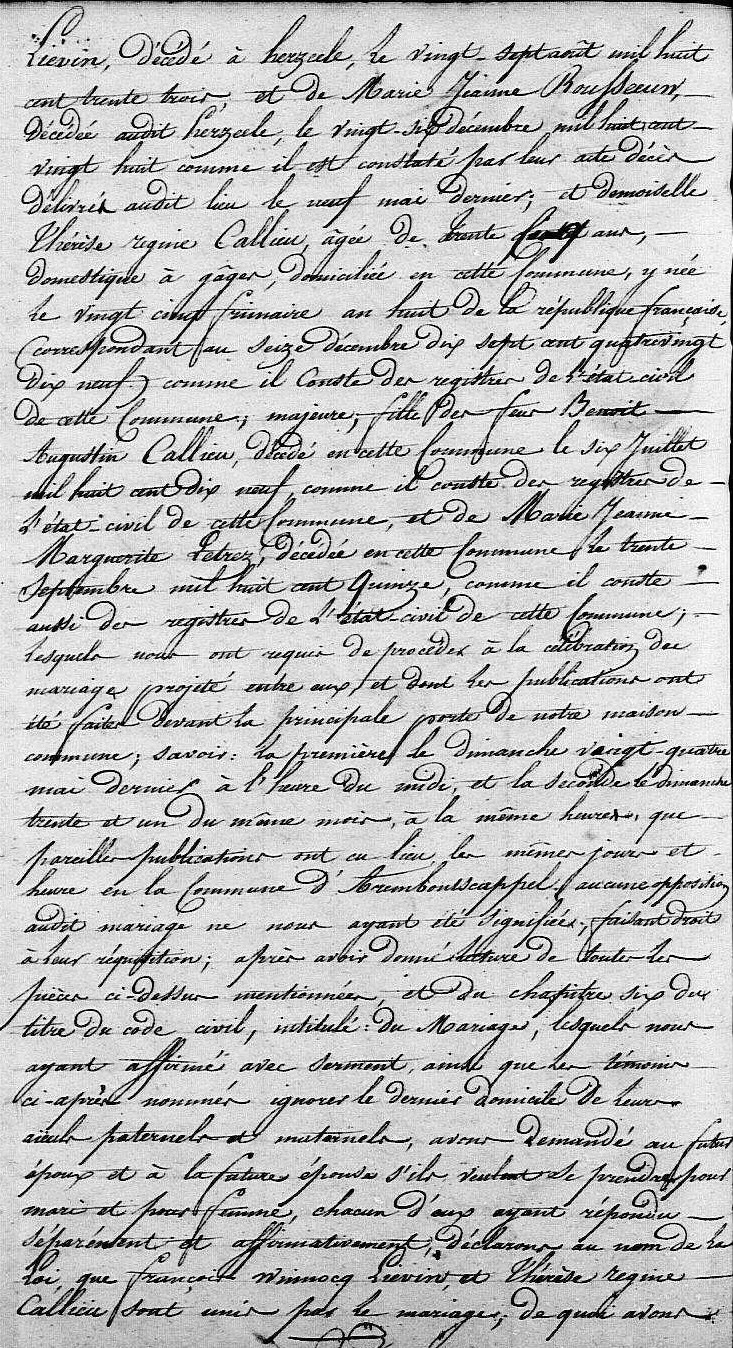 Lievin, décédé à herzeele, le vingt-sept août mil huit
cent trente trois, et de Marie Jeanne Rousseeuw,
Décédée audit herzeele, le vingt-six décembre mil huit cent
vingt huit comme il est constaté par leur acte décès
délivrés audit lieu le neuf mai dernier; et demoiselle
Thérèse regine Callieu, âgée de trente ans,
domestique à gâges, domiciliée en cette Commune, y née
le vingt cinq frimaire an huit de la république française,
(correspondant au seize décembre dix sept cent quatrevingt
dix neuf) comme il Conste des registres de l'état-civil
de cette Commune; majeure, fille des feus Benoit
Augustin Callieu, décédé en cette Commune le six Juillet
mil huit cent dix neuf, comme il conste des registres de
l'état-civil de cette Commune, et de Marie Jeanne
Marguerite Petrez, décédée en cette Commune le trente
Septembre mil huit cent Quinze, comme il conste
aussi des registres de l'état-civil de cette Commune;
lesquels nous ont requis de procéder à la célébration du
mariage projeté entre eux, et dont les publications ont
été faites devant la principale porte de notre maison
commune; savoir: la première le dimanche vingt-quatre
mai dernier à l'heure du midi, et la seconde le dimanche
trente et un du même mois, à la même heure, que
pareilles publications ont eu lieu les mêmes jours et
heure en la Commune d'Arembouts-cappel; aucune opposition
audit mariage ne nous ayant été signifiée; faisant droit
à leur réquisition; après avoir donné lecture de toutes les
pièces ci-dessus mentionnées, et du chapitre six du
titre du code civil, intitulé: du Mariage, lesquels nous
ayant affirmé avec serment, ainsi que les témoins
ci-après nommés ignorer le dernier domicile de leurs
aïeuls paternels et maternels, avons demandé au futur
époux et à la future épouse s'ils veulent se prendre pour
mari et pour femme, chacun d'eux ayant répondu
séparément et affirmativement, déclarons au nom de la
Loi, que françois Winnocq Lievin, et Thérèse regine
Callieu sont unis par le mariage; de quoi avons